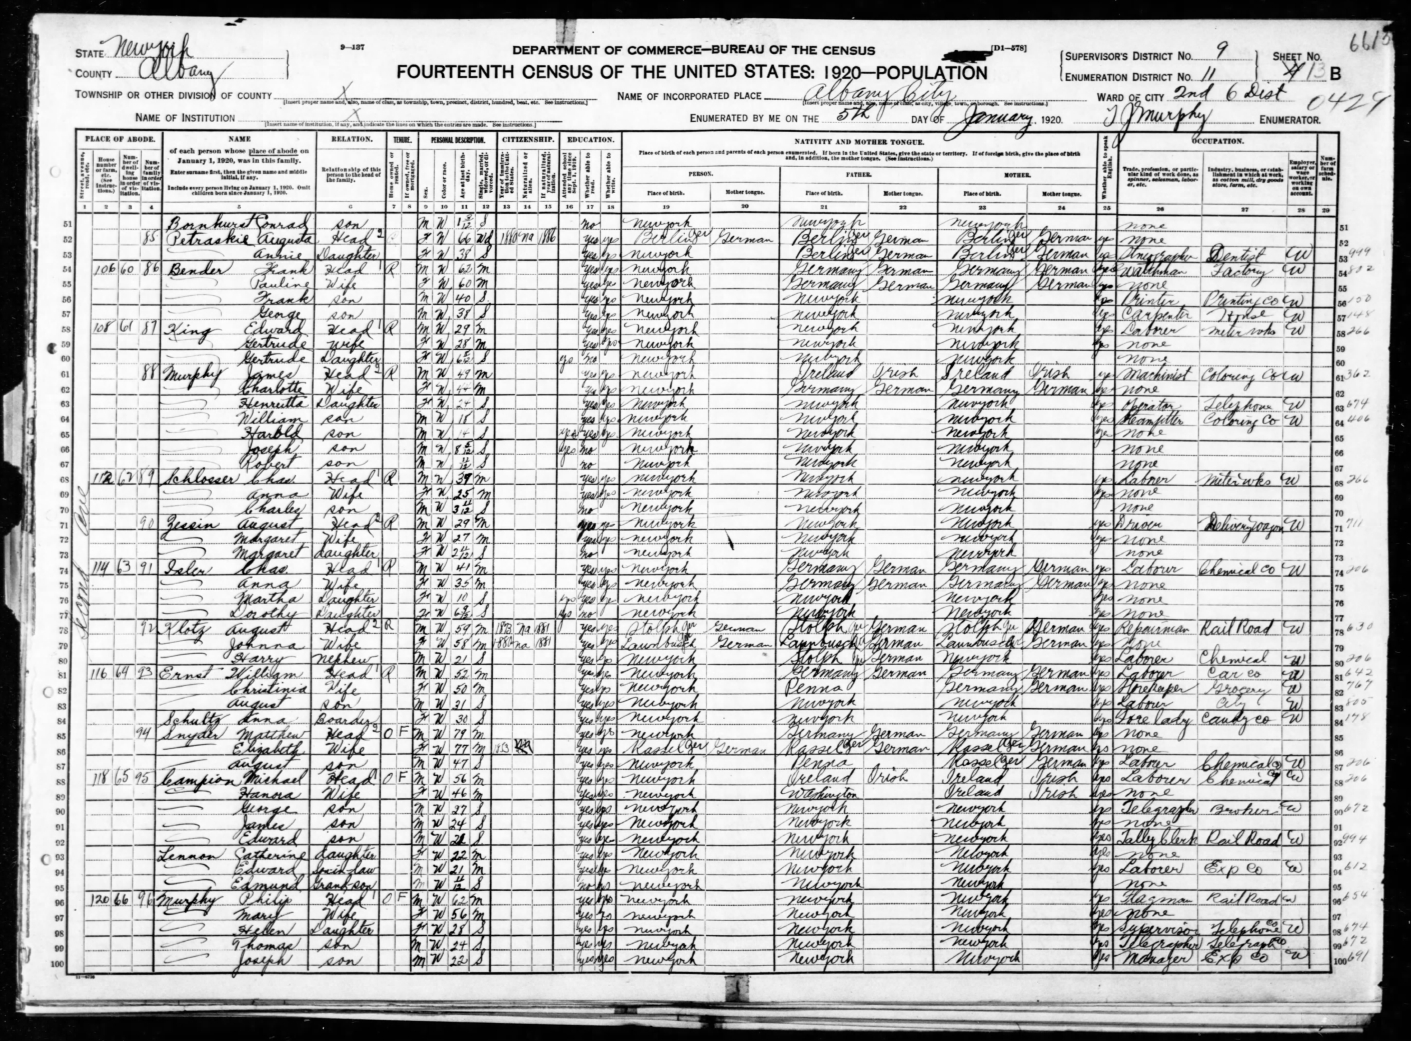 6615
STATE New York
9—137
DEPARTMENT OF COMMERCE—BUREAU OF THE CENSUS
[D1-578]
SUPERVISOR'S DISTRICT No. 9
SHEET No.
COUNTY Albany
FOURTEENTH CENSUS OF THE UNITED STATES: 1920—POPULATION
ENUMERATION DISTRICT No. 11
13 B
TOWNSHIP OR OTHER DIVISION OF COUNTY X
NAME OF INCORPORATED PLACE Albany City
WARD OF CITY 2nd 6 Dist
0429
NAME OF INSTITUTION X
ENUMERATED BY ME ON THE 5th DAY OF January, 1920. T J Murphy ENUMERATOR.
PLACE OF ABODE. NAME RELATION. TENURE. PERSONAL DESCRIPTION. CITIZENSHIP. EDUCATION. NATIVITY AND MOTHER TONGUE. OCCUPATION.
of each person whose place of abode on January 1, 1920, was in this family.
Enter surname first, then the given name and middle initial, if any.
Include every person living on January 1, 1920. Omit children born since January 1, 1920.
Relationship of this person to the head of the family.
PERSON. FATHER. MOTHER.
Place of birth. Mother tongue. Place of birth. Mother tongue. Place of birth. Mother tongue.
1 2 3 4 5 6 7 8 9 10 11 12 13 14 15 16 17 18 19 20 21 22 23 24 25 26 27 28 29
51 Bornhurst Conrad son M W S no New York New York New York none
52 85 Petraskie Augusta Head 2 F W 66 Wd 1880 na 1886 yes yes Berlin Ger German Berlin Ger German Berlin Ger German yes none
53 Annie Daughter F W 38 S yes yes New York Berlin Ger German Berlin Ger German yes Dentist W
54 106 60 86 Bender Frank Head 1 R M W 62 M yes yes New York Germany German Germany German yes Watchman Factory W
55 Pauline Wife F W 60 M yes yes New York Germany German Germany German yes none
56 Frank son M W 40 S yes yes New York New York New York yes Printer Printing Co W
57 George son M W 38 S yes yes New York New York New York yes Carpenter House W
58 108 61 87 King Edward Head 1 R M W 29 M yes yes New York New York New York yes Laborer Meter wks W 266
59 Gertrude Wife F W 28 M yes yes New York New York New York yes none
60 Gertrude Daughter F W S yes no New York New York New York none
61 88 Murphy James Head 2 R M W 49 M yes yes New York Ireland Irish Ireland Irish yes Machinist Coloring Co W 362
62 Charlotte Wife F W 44 M yes yes New York Germany German Germany German yes none
63 Henrietta Daughter F W 24 S yes yes New York New York New York yes Operator Telephone W 674
64 William son M W 18 S yes yes New York New York New York yes Coloring Co W 406
65 Harold son M W S yes yes yes New York New York New York yes none
66 Joseph son M W S yes no New York New York New York none
67 Robert son M W S no New York New York New York none
68 112 62 89 Schlosser Chas Head 1 R M W 39 M yes yes New York New York New York yes Laborer Meter wks W 266
69 Anna Wife F W 25 M yes yes New York New York New York yes none
70 Charley son M W S no New York New York New York none
71 90 Zessin August Head 2 R M W 29 M yes yes New York New York New York yes Driver Delivery wagon W 711
72 Margaret Wife F W 27 M yes yes New York New York New York yes none
73 Margaret daughter F W S no New York New York New York none
74 114 63 91 Isler Chas Head 1 R M W 41 M yes yes New York Germany German Germany German yes Labour Chemical Co W 206
75 Anna Wife F W 35 M yes yes New York Germany German Germany German yes none
76 Martha Daughter F W 10 S yes yes yes New York New York New York yes none
77 Dorothy Daughter F W S yes no New York New York New York yes none
78 92 Klotz August Head 2 R M W 59 M na 1881 yes yes Stolph Ger German Stolph Ger German Stolph Ger German yes Repairman Rail Road W 630
79 Johnna Wife F W 58 M na 1881 yes yes German German German yes none
80 Harry Nephew M W 21 S yes yes New York Stolph Ger German New York yes Laborer Chemical W 206
81 116 64 93 Ernst William Head 1 R M W 52 M yes yes New York Germany German Germany German yes Labour Car Co W 642
82 Christinia Wife F W 50 M yes yes New York Penna Germany German yes Storekeeper Grocery W 767
83 August son M W 21 S yes yes New York New York New York yes Labour City W
84 Schultz Anna Boarder F W 30 S yes yes New York New York New York yes Fore lady Candy Co W 178
85 94 Snyder Matthew Head 2 O F M W 79 M yes yes New York Germany German Germany German yes none
86 Elizabeth Wife F W 77 M yes yes Kassel Ger German Kassel Ger German Kassel Ger German yes none
87 August son M W 47 S yes yes New York Penna Kassel Ger German yes Labour Chemical Co W 206
88 118 65 95 Campion Michael Head 1 O F M W 56 M yes yes New York Ireland Irish Ireland Irish yes Laborer Chemical W 206
89 Hanora Wife F W 46 M yes yes New York Washington Ireland Irish yes none
90 George son M W 27 S yes yes New York New York New York yes Telegrapher Broker W 672
91 James son M W 24 S yes yes New York New York New York yes none
92 Edward son M W S yes yes New York New York New York yes Tally Clerk Rail Road W 994
93 Lennon Catherine daughter F W 22 M yes yes New York New York New York yes none
94 Edward Son in law M W 21 M yes yes New York New York New York yes Laborer Exp Co W 612
95 Edmund Grandson M W S no no New York New York New York none
96 120 66 96 Murphy Philip Head 1 O F M W 62 M yes yes New York New York New York yes Flagman Rail Road W 654
97 Mary Wife F W 56 M yes yes New York New York New York yes none
98 Helen Daughter F W 28 S yes yes New York New York New York yes Supervisor Telephone Co W 674
99 Thomas son M W 24 S yes yes New York New York New York yes Telegrapher Telegraph Co 672
100 Joseph son M W 22 S yes yes New York New York New York yes Manager Exp Co W 691
Second Ave